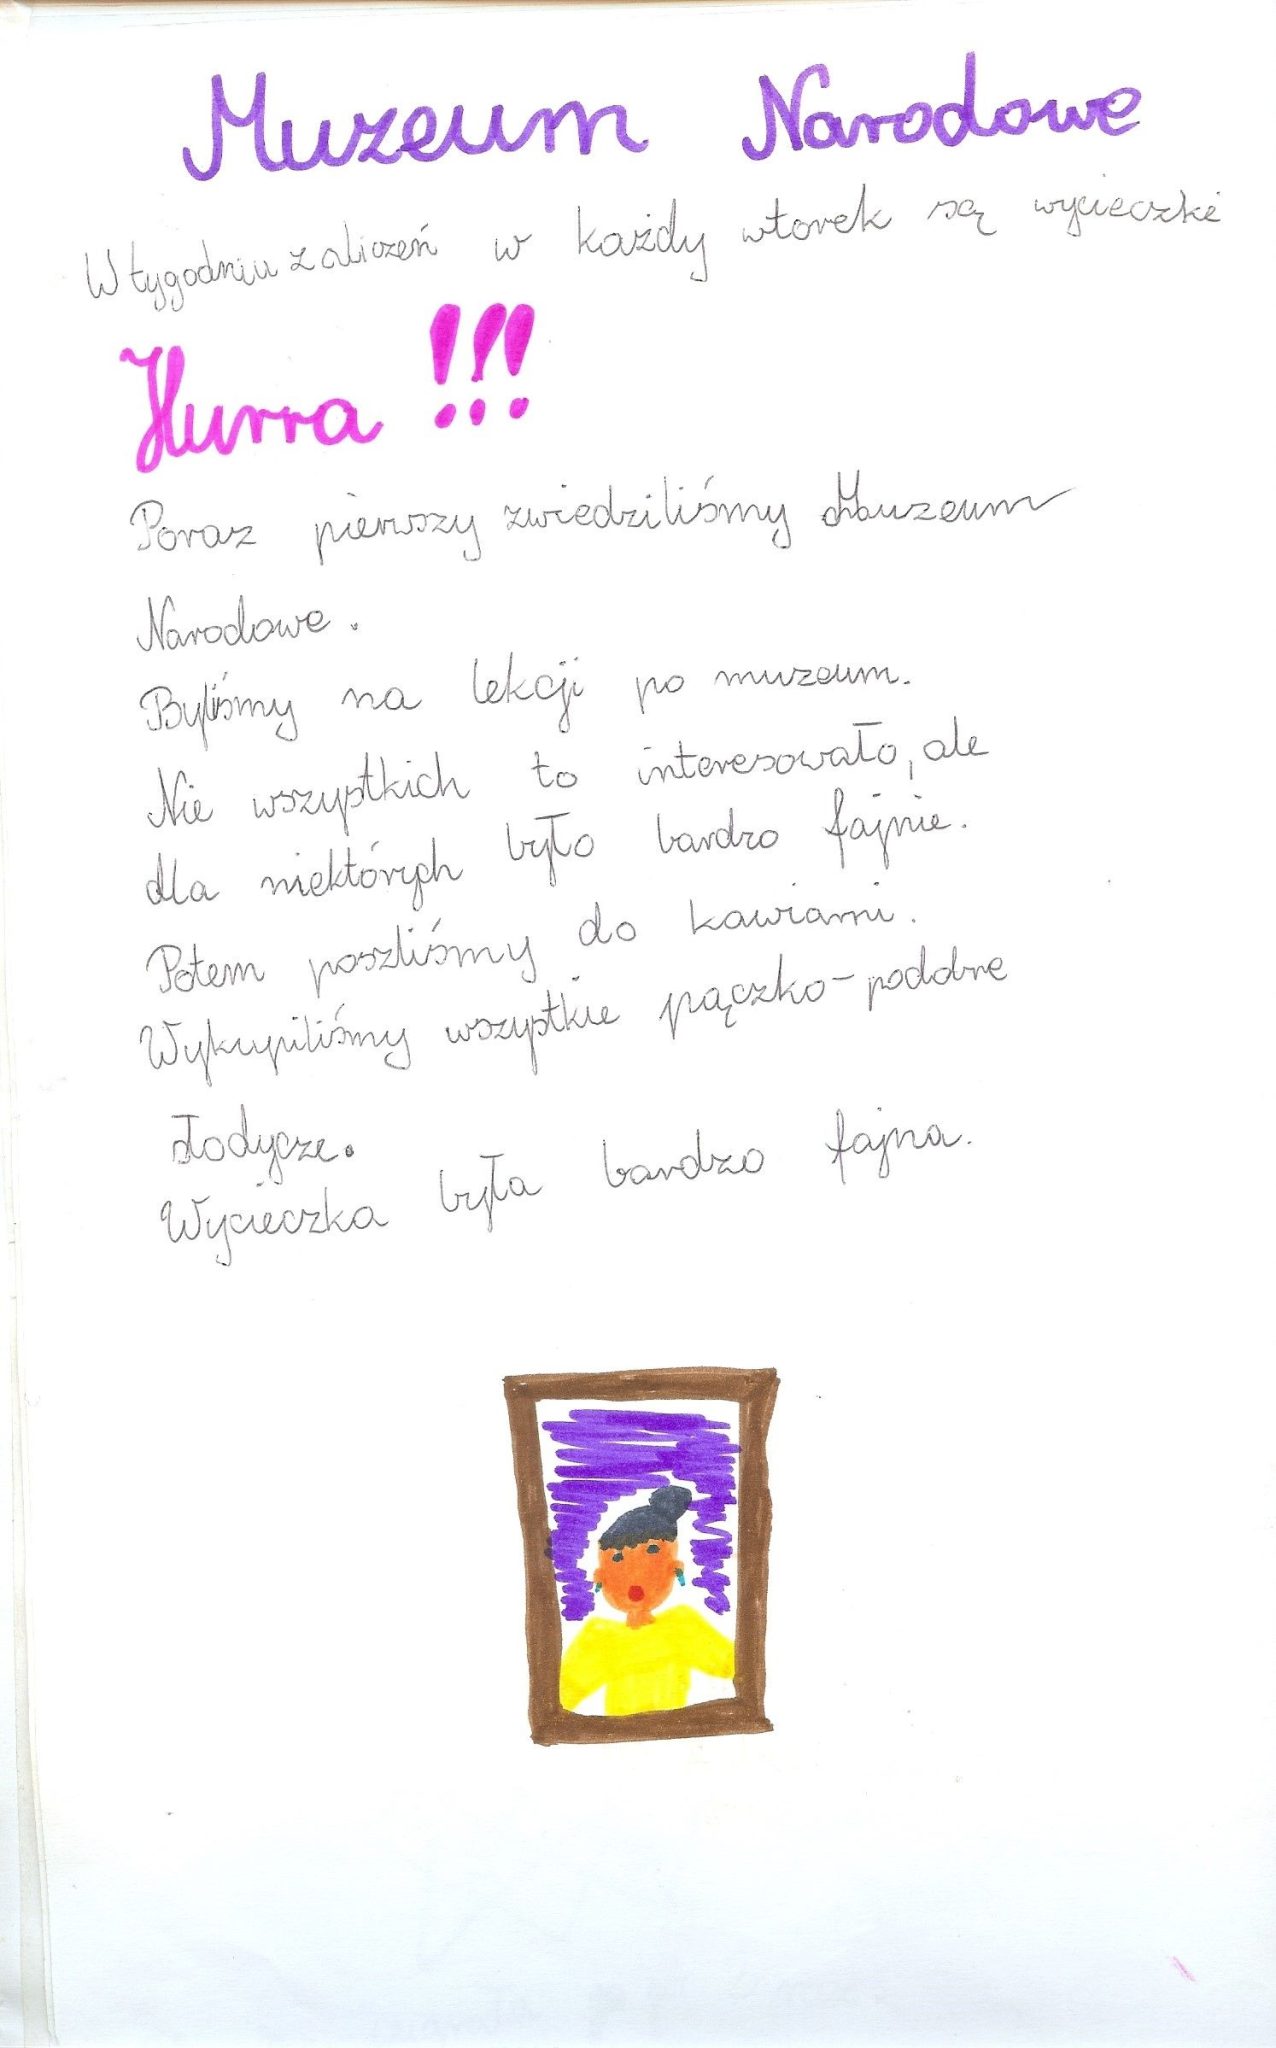 Muzeum Narodowe
W tygodniu zaliczeń w każdy wtorek są wycieczki
Hurra!!!
Poraz pierwszy zwiedziliśmy Muzeum
Narodowe.
Byliśmy na lekcji po muzeum.
Nie wszystkich to interesowało, ale
dla niektórych było bardzo fajnie.
Potem poszliśmy do kawiarni.
Wykupiliśmy wszystkie pączko-podobne
słodycze.
Wycieczka była bardzo fajna.